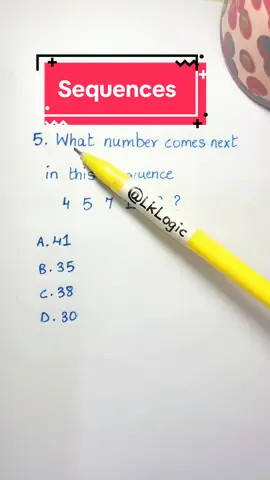 Sequences
5. What number comes next
in this
4 5 7 ?
@LKLogic
A. 41
B. 35
C. 38
D. 30